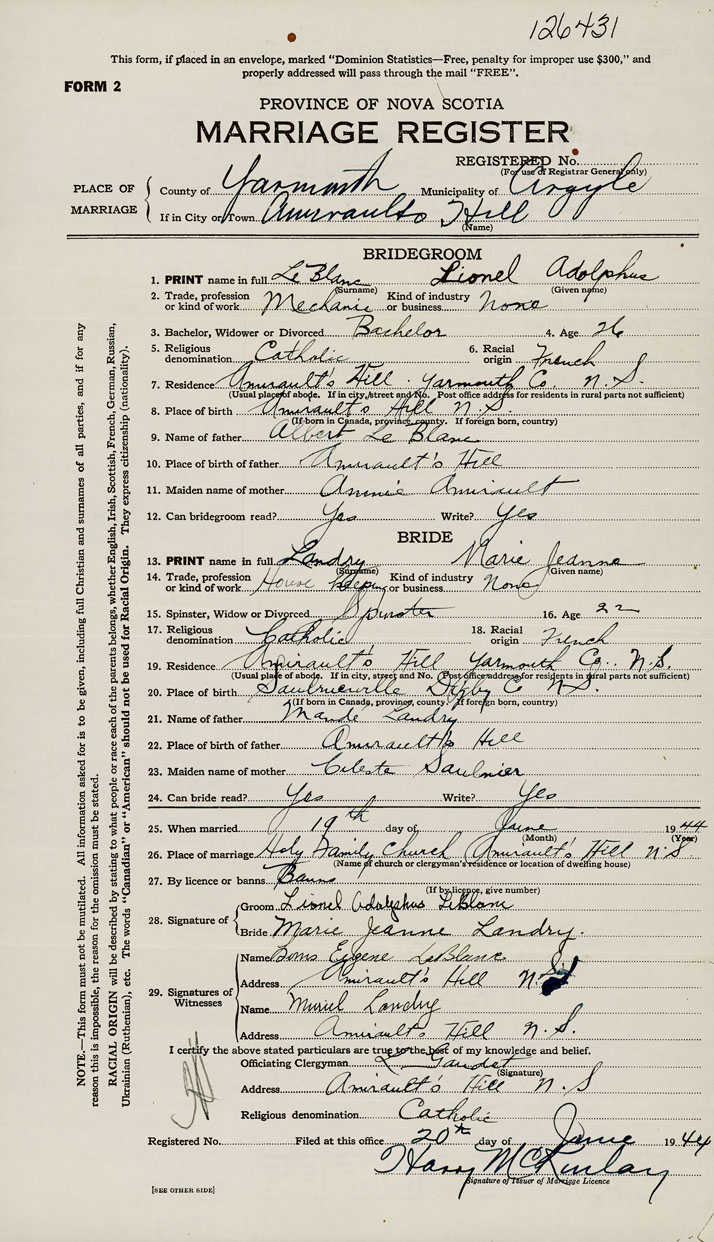 126431
This form, if placed in an envelope, marked "Dominion Statistics—Free, penalty for improper use $300," and
properly addressed will pass through the mail "FREE".
FORM 2
PROVINCE OF NOVA SCOTIA
MARRIAGE REGISTER
REGISTERED No.
(For use of Registrar General only)
PLACE OF MARRIAGE
County of Yarmouth Municipality of Argyle
If in City or Town Amiraults Hill
(Name)
BRIDEGROOM
1. PRINT name in full LeBlanc Lionel Adolphus
(Surname) (Given name)
2. Trade, profession or kind of work Mechanic Kind of industry or business None
3. Bachelor, Widower or Divorced Bachelor 4. Age 26
5. Religious denomination Catholic 6. Racial origin French
7. Residence Amirault's Hill Yarmouth Co. N.S.
(Usual place of abode. If in city, street and No. Post office address for residents in rural parts not sufficient)
8. Place of birth Amirault's Hill N.S.
(If born in Canada, province, county. If foreign born, country)
9. Name of father Albert Le Blanc
10. Place of birth of father Amirault's Hill
11. Maiden name of mother Annie Amirault
12. Can bridegroom read? Yes Write? Yes
BRIDE
13. PRINT name in full Landry Marie Jeanne
(Surname) (Given name)
14. Trade, profession or kind of work House keeping Kind of industry or business None
15. Spinster, Widow or Divorced Spinster 16. Age 22
17. Religious denomination Catholic 18. Racial origin French
19. Residence Amirault's Hill Yarmouth Co. N.S.
(Usual place of abode. If in city, street and No. Post office address for residents in rural parts not sufficient)
20. Place of birth Saulnierville Digby Co N.S.
(If born in Canada, province, county. If foreign born, country)
21. Name of father Mande Landry
22. Place of birth of father Amirault's Hill
23. Maiden name of mother Celeste Saulnier
24. Can bride read? Yes Write? Yes
25. When married 19th day of June 1944
(Month) (Year)
26. Place of marriage Holy Family Church Amirault's Hill N.S.
(Name of church or clergyman's residence or location of dwelling house)
27. By licence or banns Banns
(If by licence, give number)
28. Signature of
Groom Lionel Adolphus LeBlanc
Bride Marie Jeanne Landry.
29. Signatures of Witnesses
Name Eugene LeBlanc
Address Amirault's Hill N.S.
Name Muriel Landry
Address Amirault's Hill N.S.
I certify the above stated particulars are true to the best of my knowledge and belief.
Officiating Clergyman Gaudet
(Signature)
Address Amirault's Hill N.S
Religious denomination Catholic
Registered No. Filed at this office 20th day of June 1944
Harry McKinlay
Signature of Issuer of Marriage Licence
[SEE OTHER SIDE]
NOTE.—This form must not be mutilated. All information asked for is to be given, including full Christian and surnames of all parties, and if for any
reason this is impossible, the reason for the omission must be stated.
RACIAL ORIGIN will be described by stating to what people or race each of the parents belongs, whether English, Irish, Scottish, French, German, Russian,
Ukrainian (Ruthenian), etc. The words "Canadian" or "American" should not be used for Racial Origin. They express citizenship (nationality).